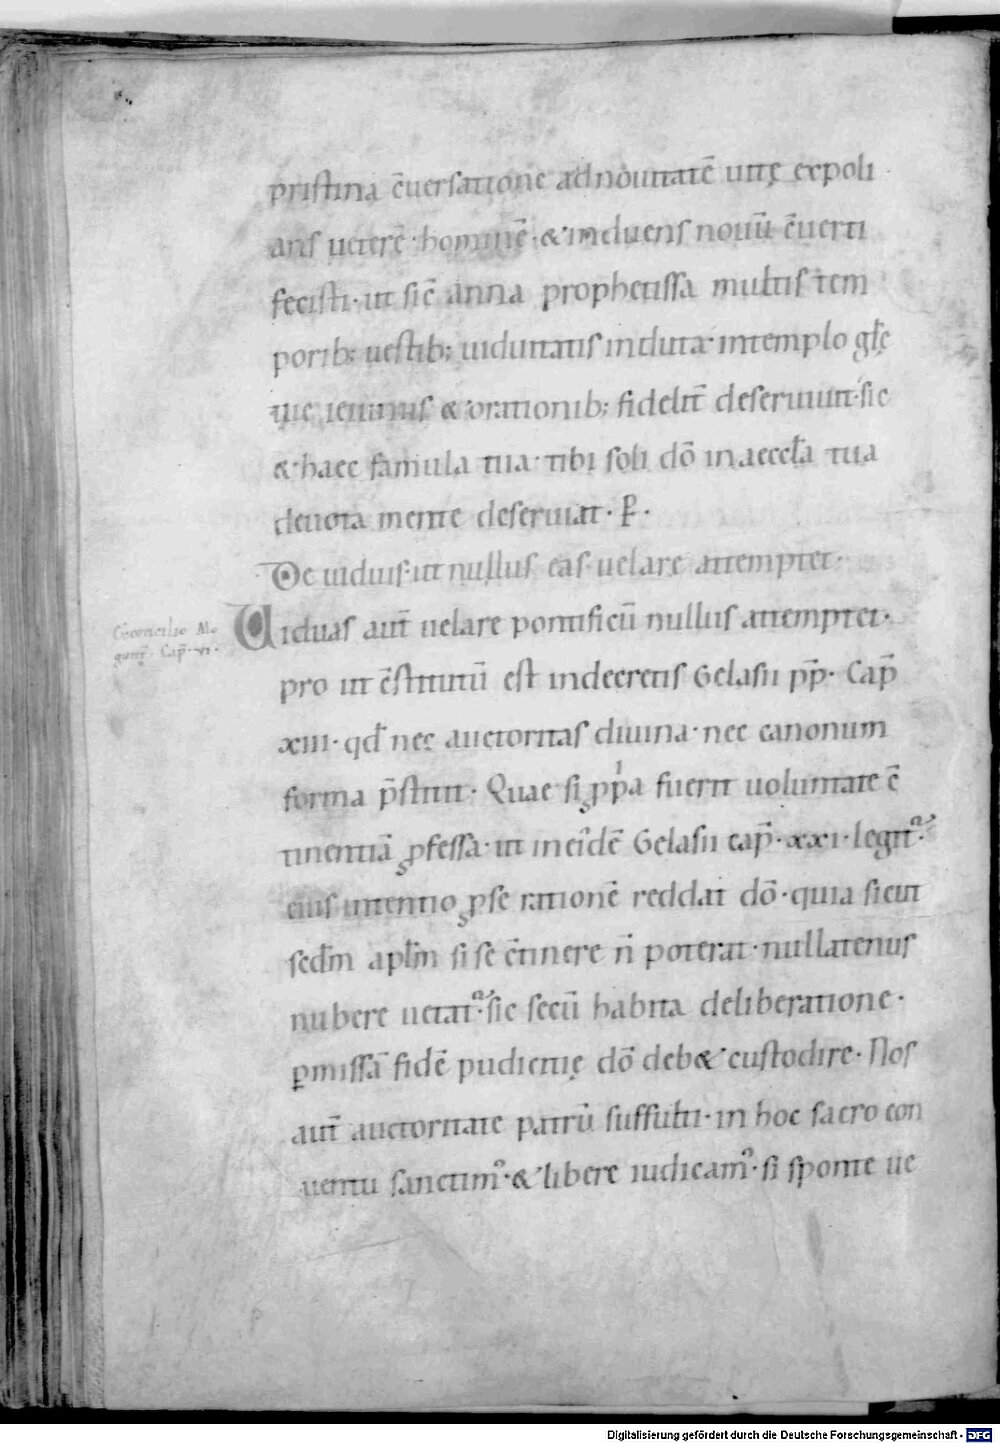 pristina c̄uersatione ad nouitatē uitę expoli
ans ueterē · hominē · & induens nouū c̄uerti
fecisti · ut sic̄ anna prophetissa multis tem
porib; uestib; uiduitatis induta · in templo gl̄ę
tue ieiuniis & orationib; fidelit̄ deseruiuit · sic
& haec famula tua · tibi soli dō in aeccl̄a tua
deuota mente deseruiat · P̄ ·
De uiduis · ut nullus eas uelare attemptet ·
Uiduas aut̄ uelare pontificū nullus attemptet ·
E concilio Mo
gont̄. Cap̄ · vi ·
pro ut c̄stitutū est in decretis Gelasii pp̄ · Cap̄
xiii · qđ nec auctoritas diuina · nec canonum
forma p̄stitit · Quae si ꝓpͥa fuerit uoluntate c̄
tinentiā ꝓfessa · ut in eiͥdē Gelasii cap̄ · xxi · legit᷑ ·
eius intentio ꝓ se rationē reddat dō · quia sicut
secđm apl̄m si se c̄tinere n̄ poterat · nullatenus
nubere uetat᷑ · sic secū habita deliberatione ·
ꝑmissā fidē pudicitię dō deb& custodire · Nos
aut̄ auctoritate patrū suffulti · in hoc sacro con
uentu sanctim᷒ · & libere iudicam᷒ · si sponte ue
Digitalisierung gefördert durch die Deutsche Forschungsgemeinschaft - DFG